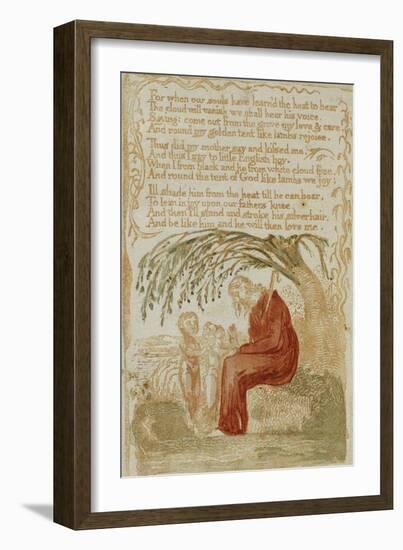 For when our souls have learn'd the heat to bear
The cloud will vanish we shall hear his voice.
Saying: come out from the grove my love & care
And round my golden tent like lambs rejoice.
Thus did my mother say and kissed me.
And thus I say to little English boy.
When I from black and he from white cloud free,
And round the tent of God like lambs we joy:
Ill shade him from the heat till he can bear,
To lean in joy upon our fathers knee.
And then I'll stand and stroke his silver hair,
And be like him and he will then love me.